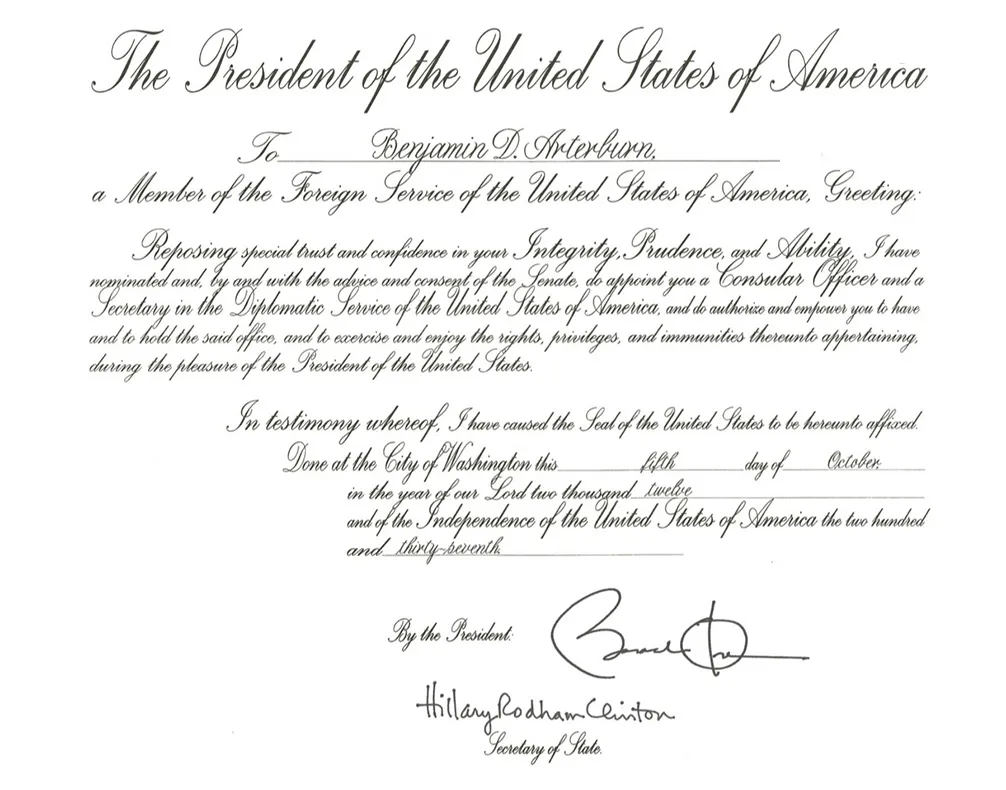 The President of the United States of America
To Benjamin D. Arterburn,
a Member of the Foreign Service of the United States of America, Greeting:
Reposing special trust and confidence in your Integrity, Prudence, and Ability, I have
nominated and, by and with the advice and consent of the Senate, do appoint you a Consular Officer and a
Secretary in the Diplomatic Service of the United States of America, and do authorize and empower you to have
and to hold the said office, and to exercise and enjoy the rights, privileges, and immunities thereunto appertaining,
during the pleasure of the President of the United States.
In testimony whereof, I have caused the Seal of the United States to be hereunto affixed.
Done at the City of Washington this fifth day of October,
in the year of our Lord two thousand twelve
and of the Independence of the United States of America the two hundred
and thirty-seventh.
By the President:
Hillary Rodham Clinton
Secretary of State.